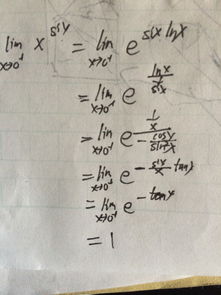 lim x→0⁺ x^{sinx} = lim x→0⁺ e^{sinx lnx}
= lim x→0⁺ e^{\frac{lnx}{\frac{1}{sinx}}}
= lim x→0⁺ e^{\frac{\frac{1}{x}}{-\frac{cosx}{sin²x}}}
= lim x→0⁺ e^{-\frac{sinx}{x} tanx}
= lim x→0⁺ e^{-tanx}
= 1